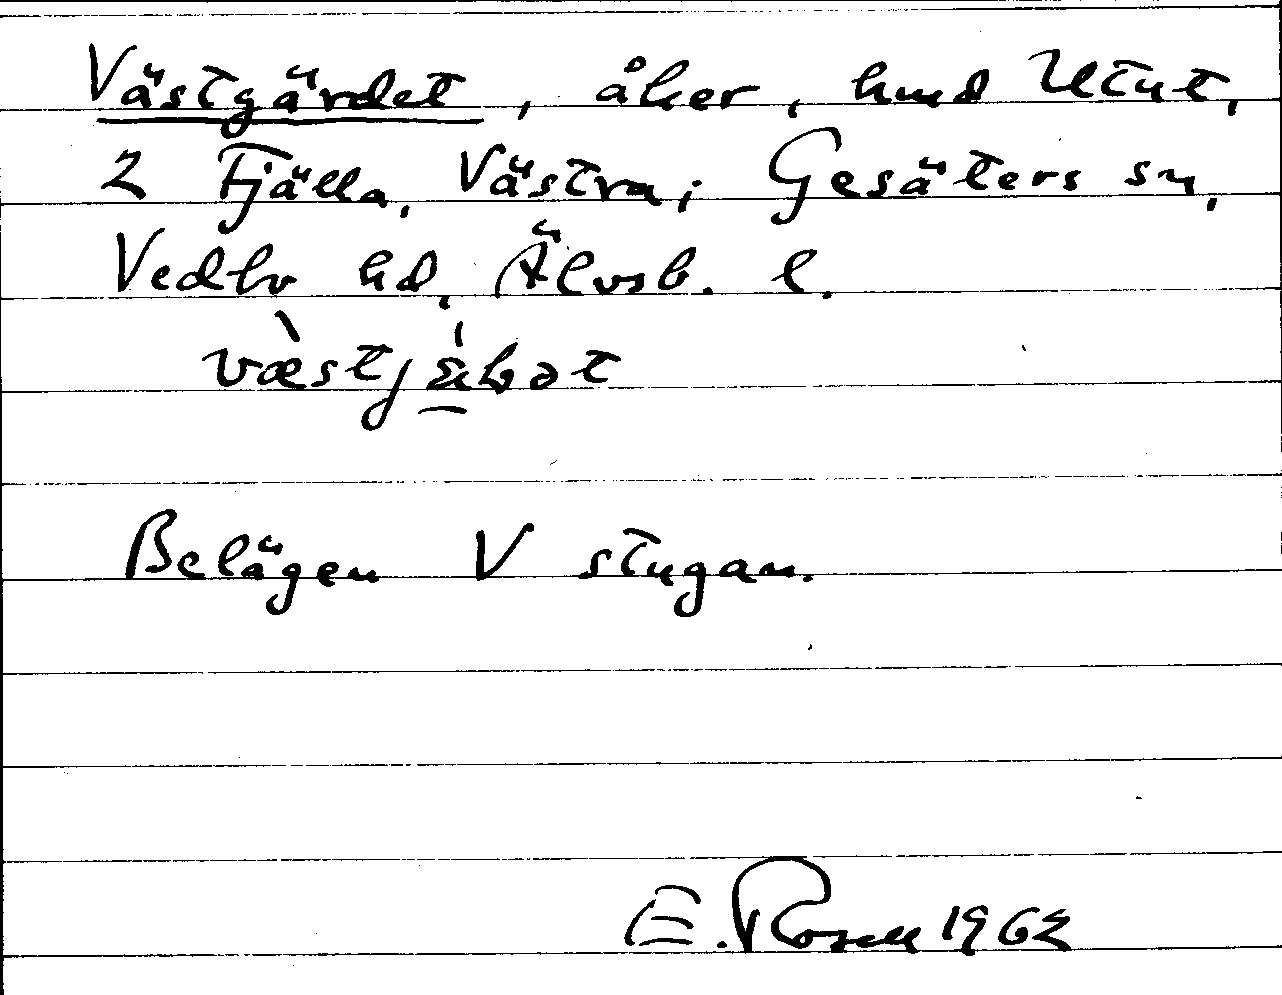 Västgärdet, åker, hmd Utnt,
2 Fjälla, Västra; Gesäters sn,
Vedbo hd, Älvsb. l.
Belägen V stugan.
E. Rosell 1962